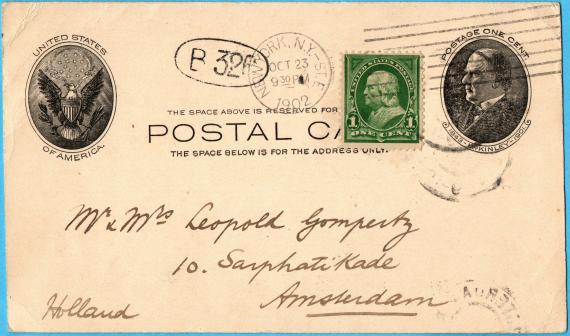 UNITED STATES
OF AMERICA.
B 32
NEW YORK, N.Y.-STA.
OCT 23
9 30 PM
1902
U
1 ONE CENT 1
POSTAGE ONE CENT
1843-McKINLEY-1901
THE SPACE ABOVE IS RESERVED FOR
POSTAL CA
THE SPACE BELOW IS FOR THE ADDRESS ONLY.
Mr & Mrs Leopold Gompertz
10. Sarphatikade
Amsterdam
Holland